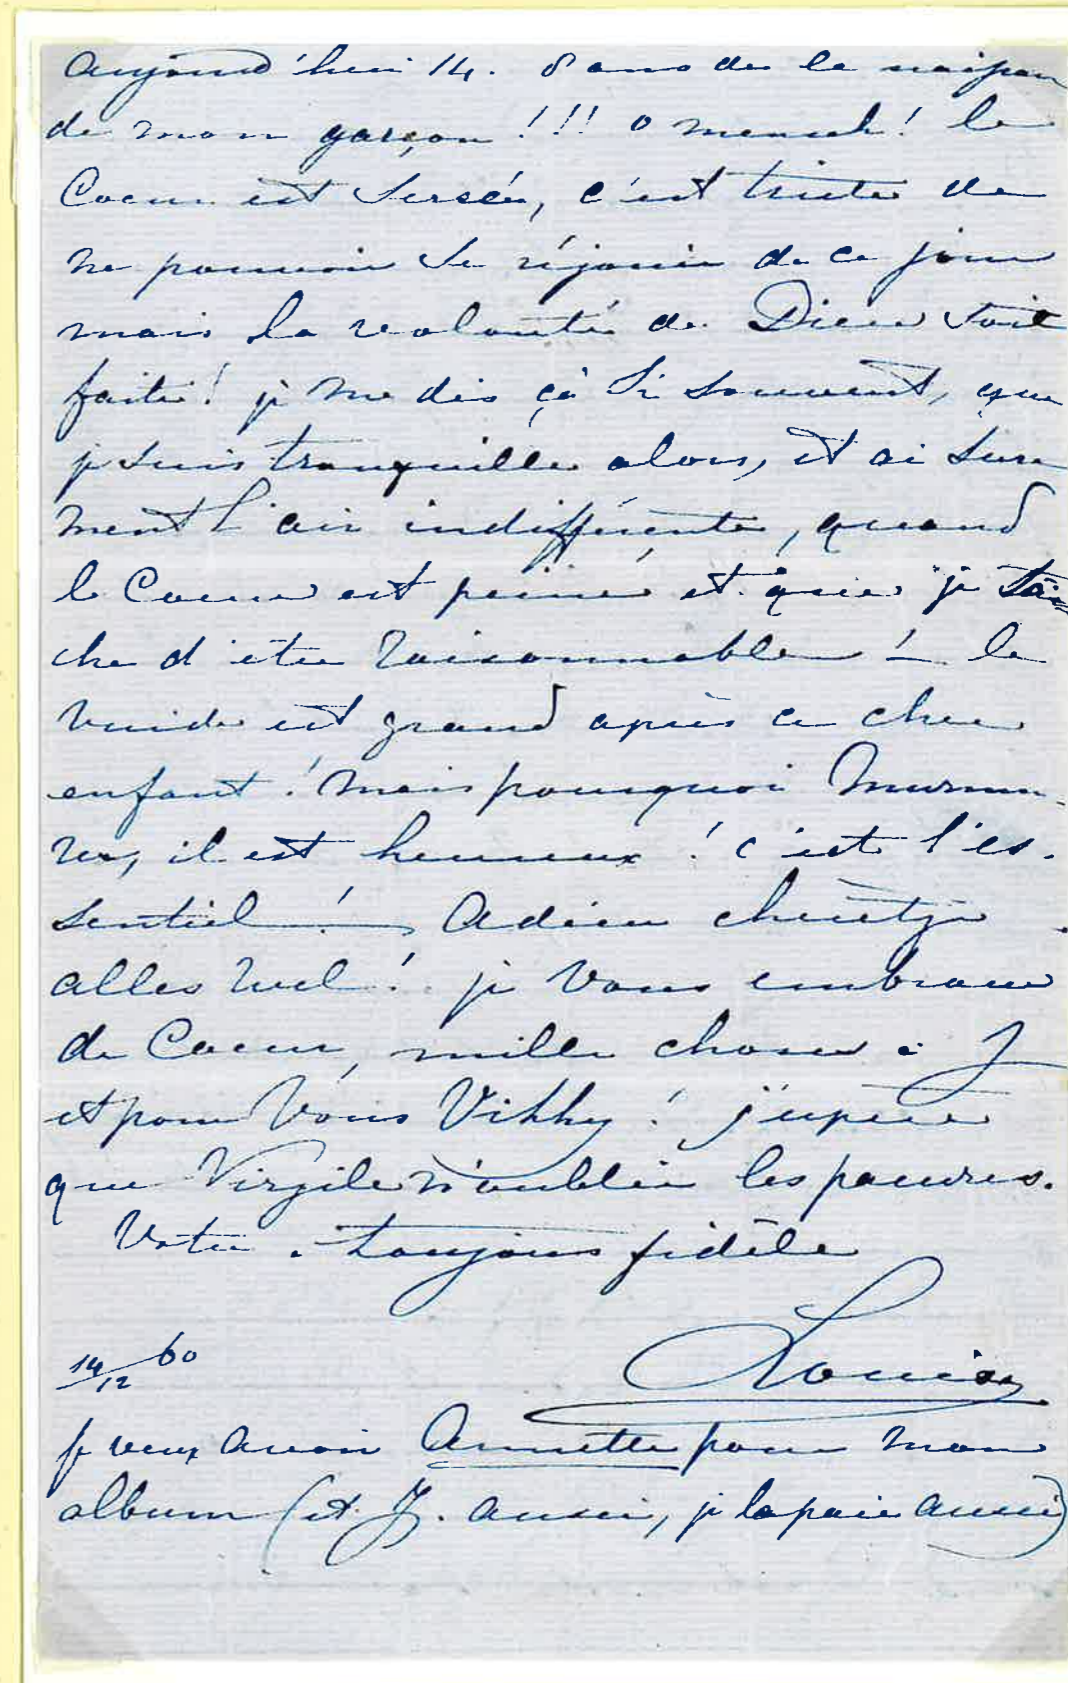 aujourd'hui 14. 8 ans de la naissan
de mon garçon !!! o mensch! le
Coeur est serré, c'est triste de
ne pouvoir se réjouir de ce jour
mais la volonté de Dieu soit
faite! je me dis çà si souvent, que
je suis tranquille alors, et ai sure
ment l'air indifférente, quand
le Coeur est peiné et que je tâ=
che d'être raisonnable! – le
vuide est grand après ce cher
enfant! mais pourquoi murmu-
rer, il est heureux! c'est l'es-
sentiel! Adieu
alles wel! je vous embrasse
de Coeur, mille choses à J
et pour Vous Vikky! j'espère
que Virgile n'oublie les pauvres.
Votre toujours fidèle
14/12 60
Louise
je veux avoir Annette pour mon
album (et J. aussi, je la paie aussi)